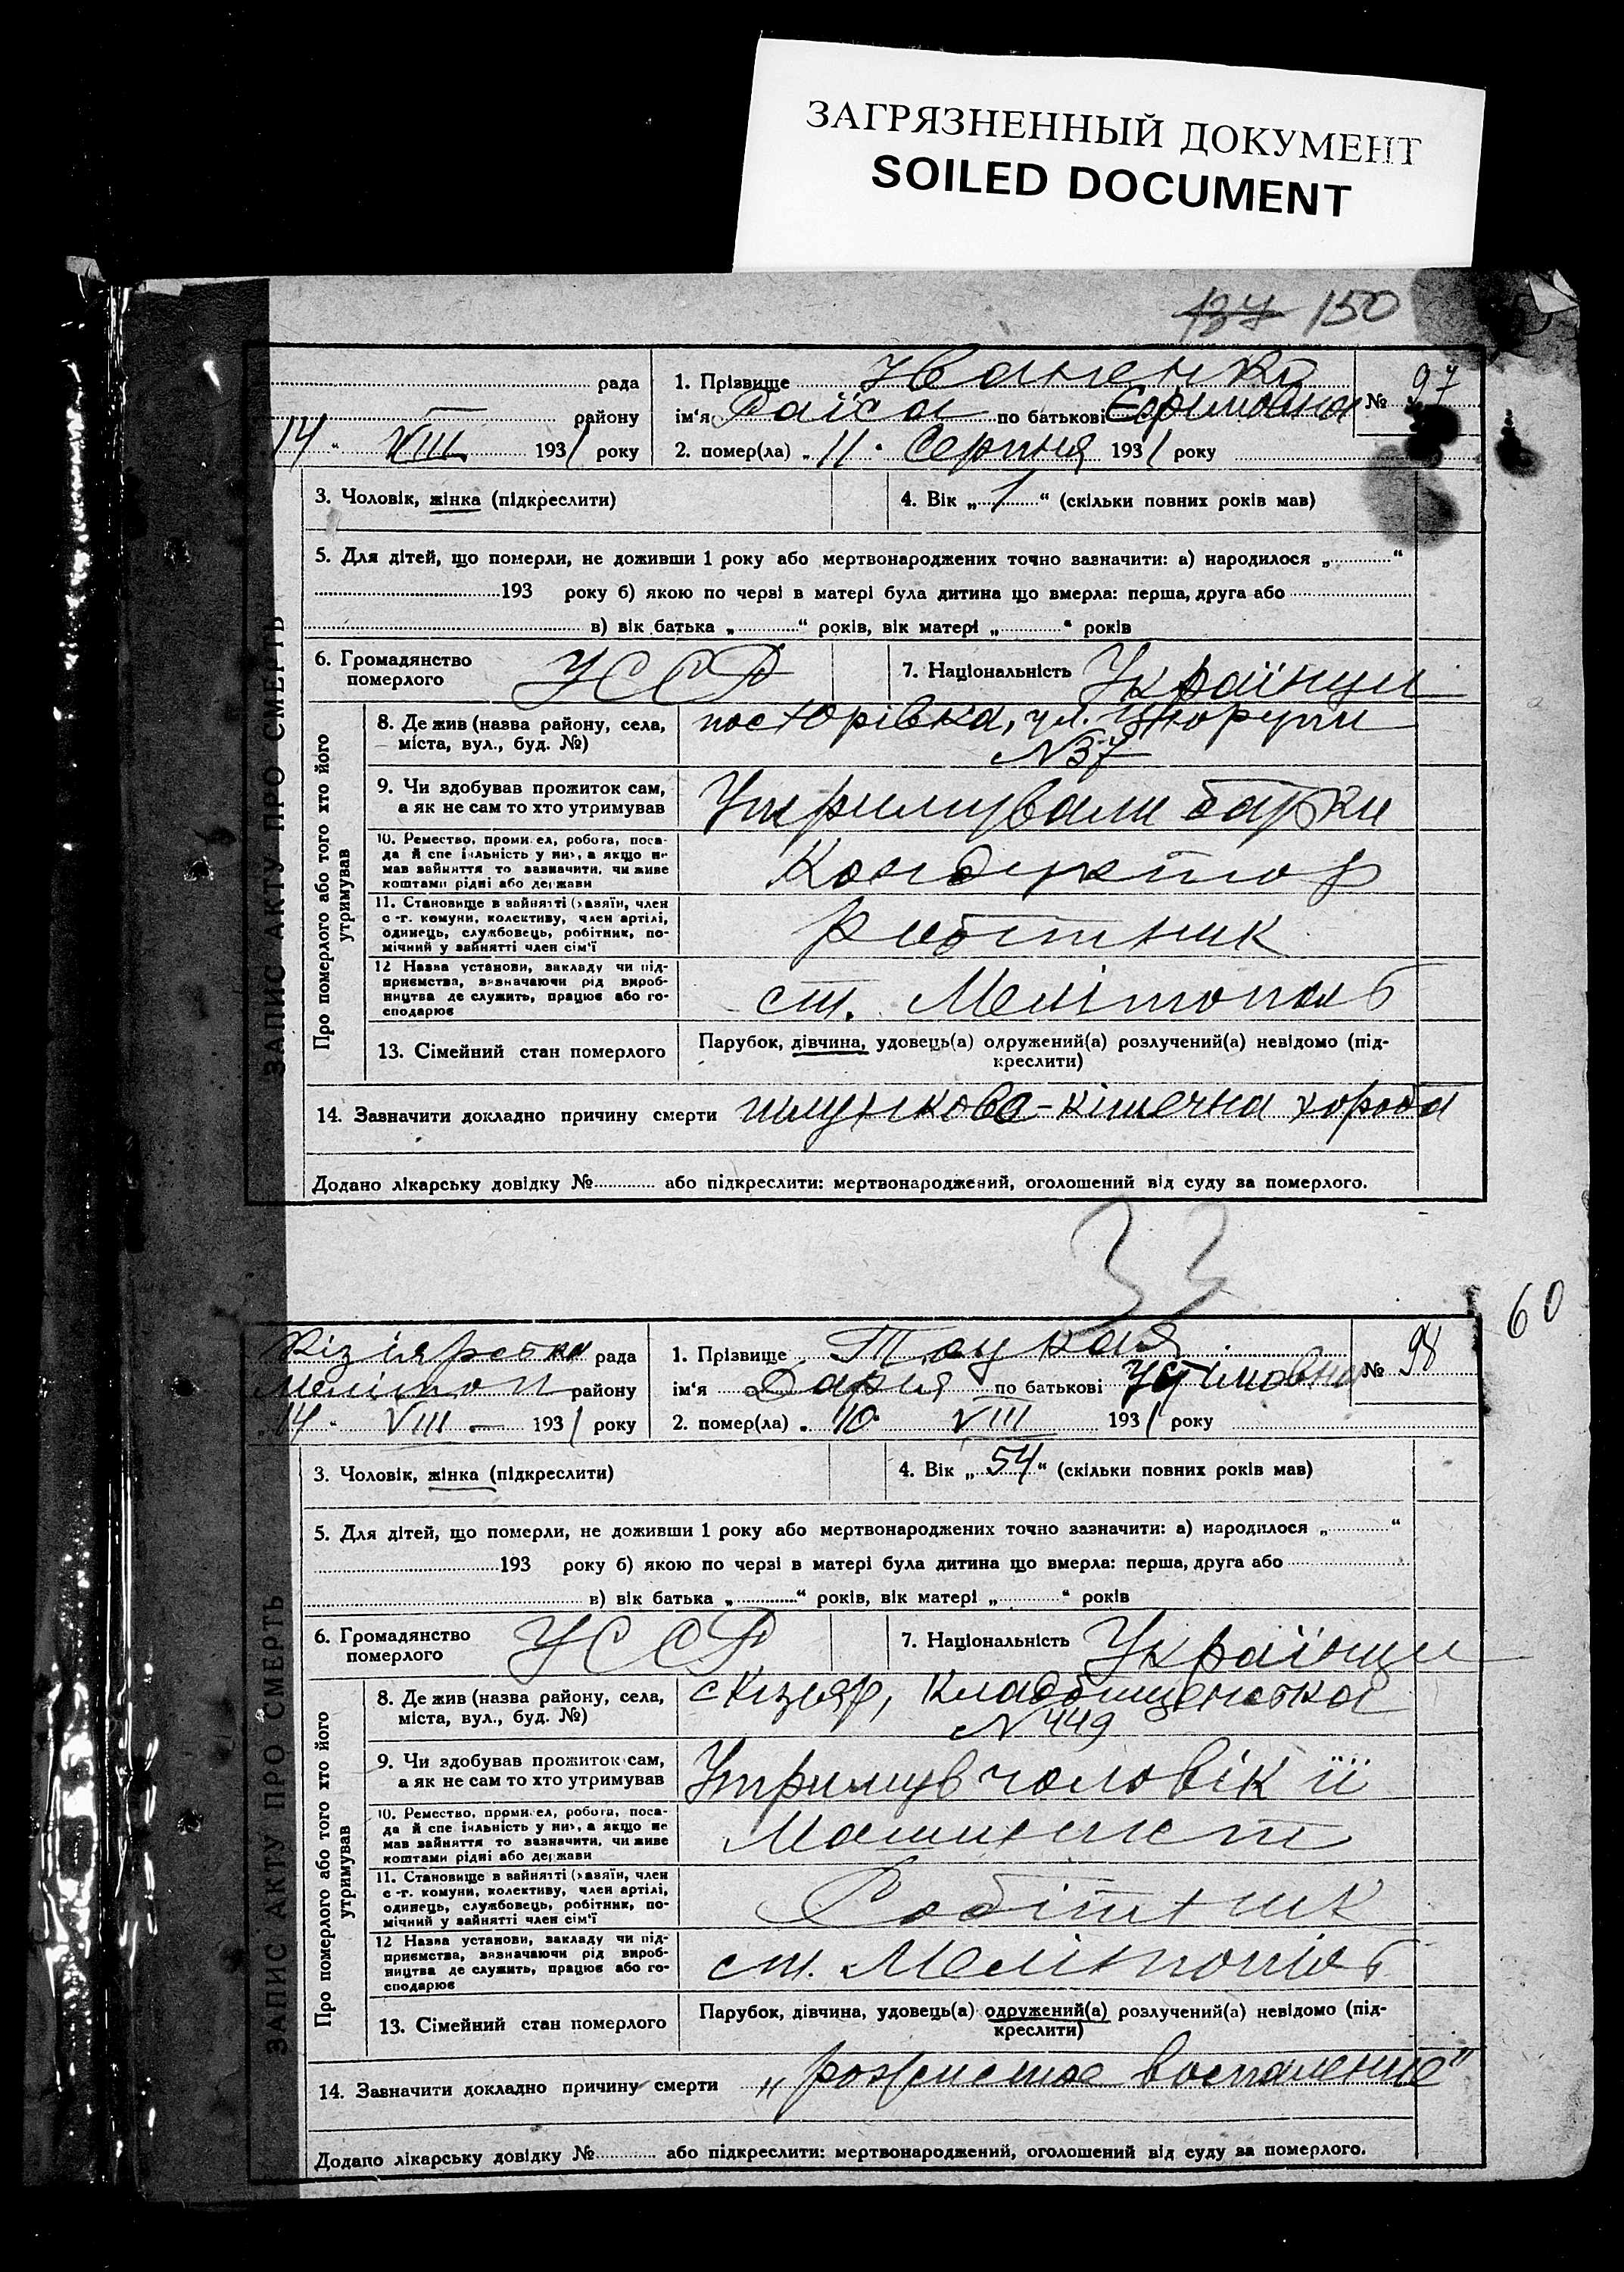 ЗАГРЯЗНЕННЫЙ ДОКУМЕНТ
SOILED DOCUMENT
137 150
рада
району
14 " VIII 1931 року
1. Прізвище Іваненко
ім'я Раїса по батькові Єфимовна
№ 97
2. помер(ла) „ 11 " Серпня 1931 року
3. Чоловік, жінка (підкреслити)
4. Вік „ 1 " (скільки повних років мав)
5. Для дітей, що померли, не доживши 1 року або мертвонароджених точно зазначити: а) народилося „ "
193 року б) якою по черві в матері була дитина що вмерла: перша, друга або
в) вік батька „ " років, вік матері „ " років
6. Громадянство померлого УССР
7. Національність Українци
8. Де жив (назва району, села, міста, вул., буд. №)
пос Юрівка, ул.
N 37
9. Чи здобував прожиток сам, а як не сам то хто утримував
Утримували батьки
10. Ремество, промисел, робота, посада й спеціальність у них, а якщо не мав зайняття то зазначити, чи живе коштами рідні або держави
Кондуктор
11. Становище в зайнятті (хазяїн, член с.-г. комуни, колективу, член артілі, одинець, службовець, робітник, помічний у зайнятті член сім'ї
Робітник
12 Назва установи, закладу чи підприємства, визначаючи рід виробництва де служить, працює або господарює
ст. Мелітополь
13. Сімейний стан померлого
Парубок, дівчина, удовець(а) одружений(а) розлучений(а) невідомо (підкреслити)
14. Зазначити докладно причину смерти шлункова-кішечна хороба
Додано лікарську довідку № або підкреслити: мертвонароджений, оголошений від суду за померлого.
Про померлого або того хто його утримував
ЗАПИС АКТУ ПРО СМЕРТЬ
33
60
Кізіярська рада
Мелітоп району
„14 " VIII 1931 року
1. Прізвище
ім'я Дарія по батькові Устимовна
№ 98
2. помер(ла) „ 10 " VIII 1931 року
3. Чоловік, жінка (підкреслити)
4. Вік „ 54 " (скільки повних років мав)
5. Для дітей, що померли, не доживши 1 року або мертвонароджених точно зазначити: а) народилося „ "
193 року б) якою по черзі в матері була дитина що вмерла: перша, друга або
в) вік батька „ " років, вік матері „ " років
6. Громадянство померлого УССР
7. Національність Українци
8. Де жив (назва району, села, міста, вул., буд. №)
с Кізіяр, Кладбищенська
N 449
9. Чи здобував прожиток сам, а як не сам то хто утримував
Утримув чоловік її
10. Ремество, промисел, робота, посада й спеціальність у них, а якщо не мав зайняття то зазначити, чи живе коштами рідні або держави
Машинист
11. Становище в зайнятті (хазяїн, член с.-г. комуни, колективу, член артілі, одинець, службовець, робітник, помічний у зайнятті член сім'ї
Робітник
12 Назва установи, закладу чи підприємства, визначаючи рід виробництва де служить, працює або господарює
ст. Мелітопіль
13. Сімейний стан померлого
Парубок, дівчина, удовець(а) одружений(а) розлучений(а) невідомо (підкреслити)
14. Зазначити докладно причину смерти „рожистое воспаление"
Додано лікарську довідку № або підкреслити: мертвонароджений, оголошений від суду за померлого.
Про померлого або того хто його утримував
ЗАПИС АКТУ ПРО СМЕРТЬ